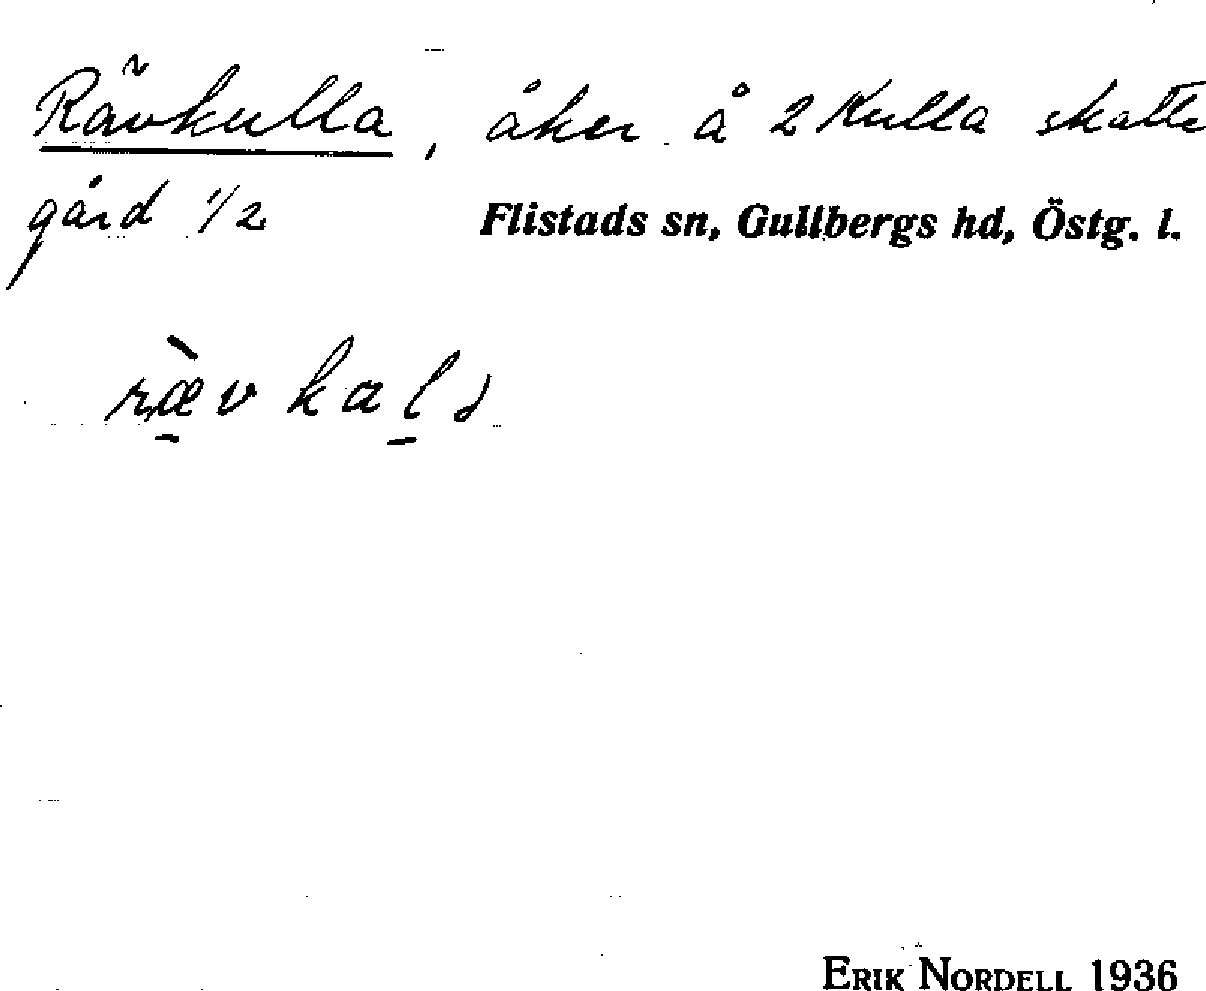 Rävkulla, åker å 2 Kulla skatte
gård 1/2 Flistads sn, Gullbergs hd, Östg. l.
ERIK NORDELL 1936